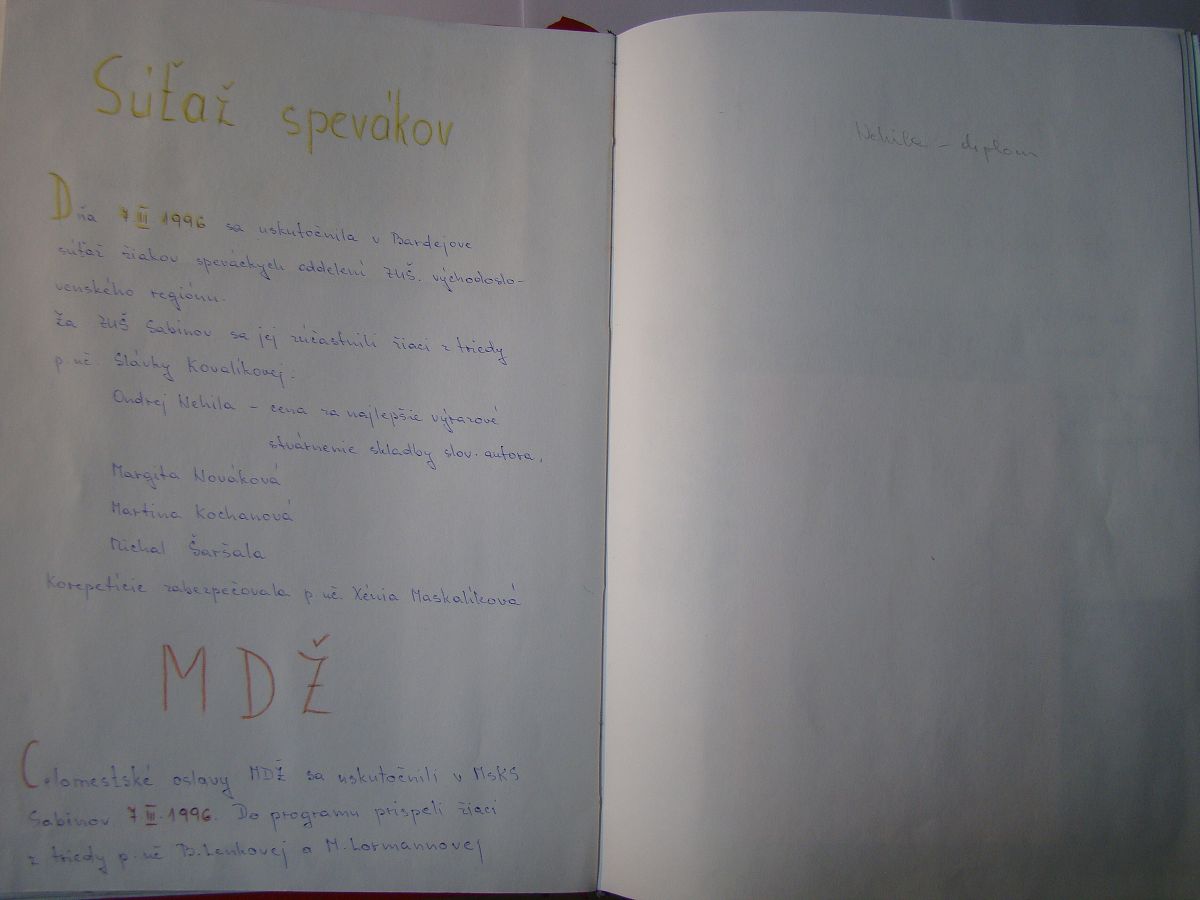 Súťaž spevákov
Dňa 7. III. 1996 sa uskutočnila v Bardejove
súťaž žiakov speváckych oddelení ZUŠ. východoslo-
venského regiónu.
Za ZUŠ Sabinov sa jej zúčastnili žiaci z triedy
p. uč. Slávky Kovalíkovej:
Ondrej Nehila – cena za najlepšie výrazové
stvárnenie skladby slov. autora.
Margita Nováková
Martina Kochanová
Michal Šaršala
Korepetície zabezpečovala p. uč. Xénia Maskalíková
MDŽ
Celomestské oslavy MDŽ sa uskutočnili v MsKS
Sabinov 7. III. 1996. Do programu prispeli žiaci
z triedy p. uč B. Lenkovej a M. Lormannovej
Nehila – diplom